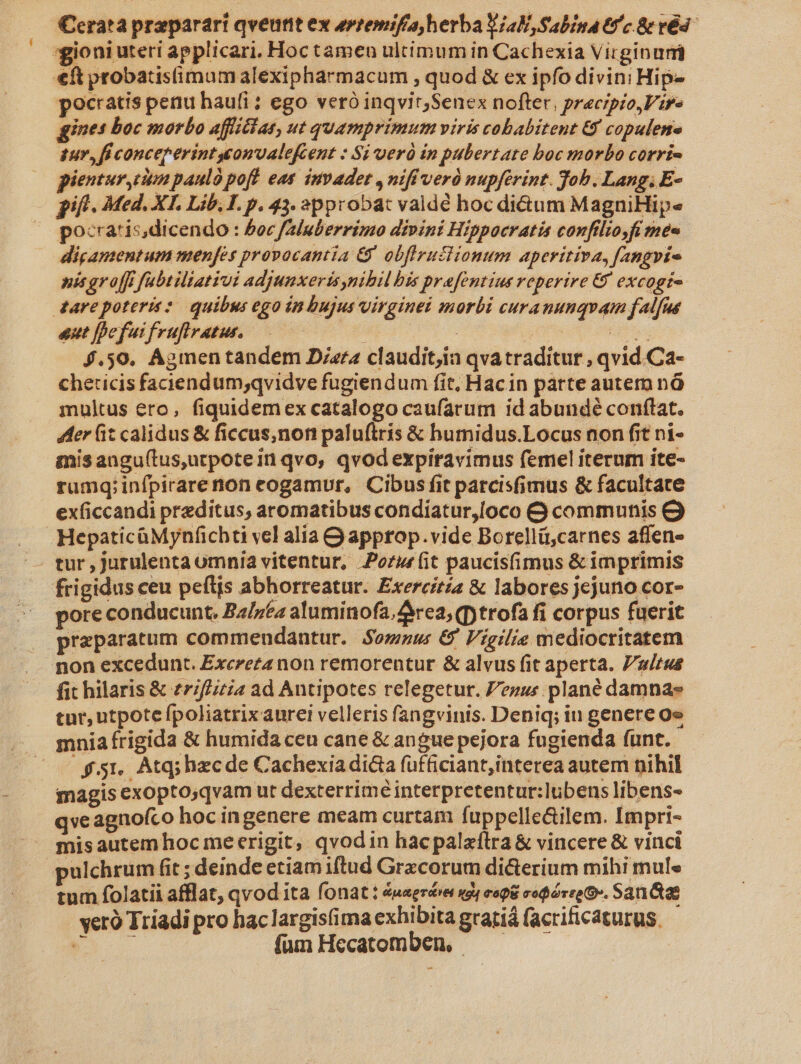 Cerata præparari qveunt ex artemisia, herba ♀iali, Sabina &c. & re-
gioni uteri applicari. Hoc tamen ultimum in Cachexia Virginum
est probatissimum alexipharmacum, quod & ex ipso divini Hip-
pocratis penu hausi; ego verò inqvit, Senex noster, præcipio, Vir-
gines hoc morbo afflictas, ut quamprimum viris cohabitent & copulen-
tur, si conceperint, convalescent: Si verò in pubertate hoc morbo corri-
pientur, tùm paulò post eas invadet, nisi verò nupserint. Joh. Lang. E-
pist. Med. XI. Lib. I. p. 43. approbat valdè hoc dictum Magni Hip-
pocratis, dicendo: hoc saluberrimo divini Hippocratis consilio, si me-
dicamentum menses provocantia & obstructionum aperitiva, sangvi-
nis grossi subtiliativi adjunxeris, nihil his præsentius reperire & excogi-
tare poteris: quibus ego in hujus virginei morbi cura nunqvam falsus
aut spe fui frustratus.
§. 50. Agmen tandem Diæta claudit, in qva traditur, qvid Ca-
checticis faciendum, qvidve fugiendum sit. Hac in parte autem nõ
multus ero, siquidem ex catalogo causarum id abundè constat.
Aer sit calidus & siccus, non palustris & humidus. Locus non sit ni-
mis angustus, utpote in qvo, qvod expiravimus semel iterum ite-
rumq; inspirare non cogamur. Cibus sit parcissimus & facultate
exsiccandi præditus, aromatibus condiatur, loco 🜔 communis 🜔
Hepaticũ Mynsichti vel alia 🜔 approp. vide Borellũ, carnes assen-
tur, jurulenta omnia vitentur. Potus sit paucissimus & imprimis
frigidus ceu pestis abhorreatur. Exercitia & labores jejuno cor-
pore conducunt. Balnea aluminosa, 🜍rea, 🜕trosa si corpus fuerit
præparatum commendantur. Somnus & Vigiliæ mediocritatem
non excedunt. Excreta non remorentur & alvus sit aperta. Vultus
sit hilaris & tristitia ad Antipotes relegetur. Venus planè damna-
tur, utpote spoliatrix aurei velleris sangvinis. Deniq; in genere o-
mnia frigida & humida ceu cane & angue pejora fugienda sunt.
§. 51. Atq; hæc de Cachexia dicta sufficiant, interea autem nihil
magis exopto, qvam ut dexterrimè interpretentur: lubens libens-
qve agnosco hoc in genere meam curtam suppellectilem. Impri-
mis autem hoc me erigit, qvod in hac palæstra & vincere & vinci
pulchrum sit; deinde etiam istud Græcorum dicterium mihi mul-
tum solatii afflat, qvod ita sonat: ἁμαρτάνει καὶ σοφȣ̃ σοφώτερος. Sanctæ
verò Triadi pro hac largissima exhibita gratiâ sacrificaturus
sum Hecatomben.